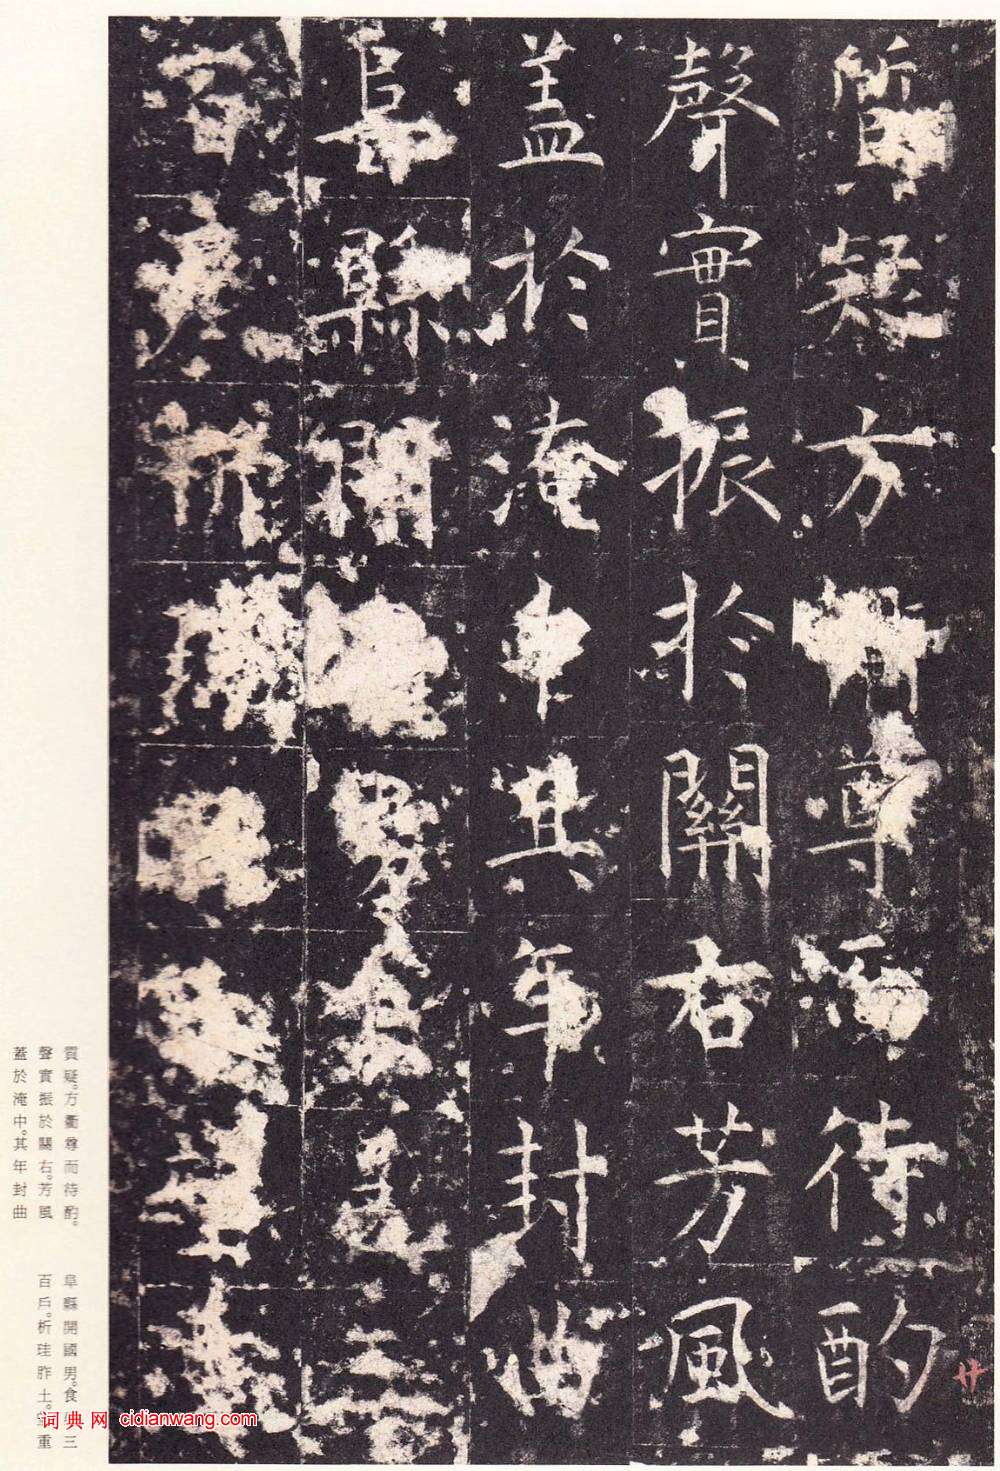 質疑方衢尊而待酌
聲實振於關右芳風
蓋於淹中其年封曲
阜縣開國男食邑三
百戶析
質疑。方衢尊而待酌。
聲實振於關右。芳風
蓋於淹中。其年封曲
阜縣開國男。食三
百戶。析珪胙土。重
词典网 cidianwang.com